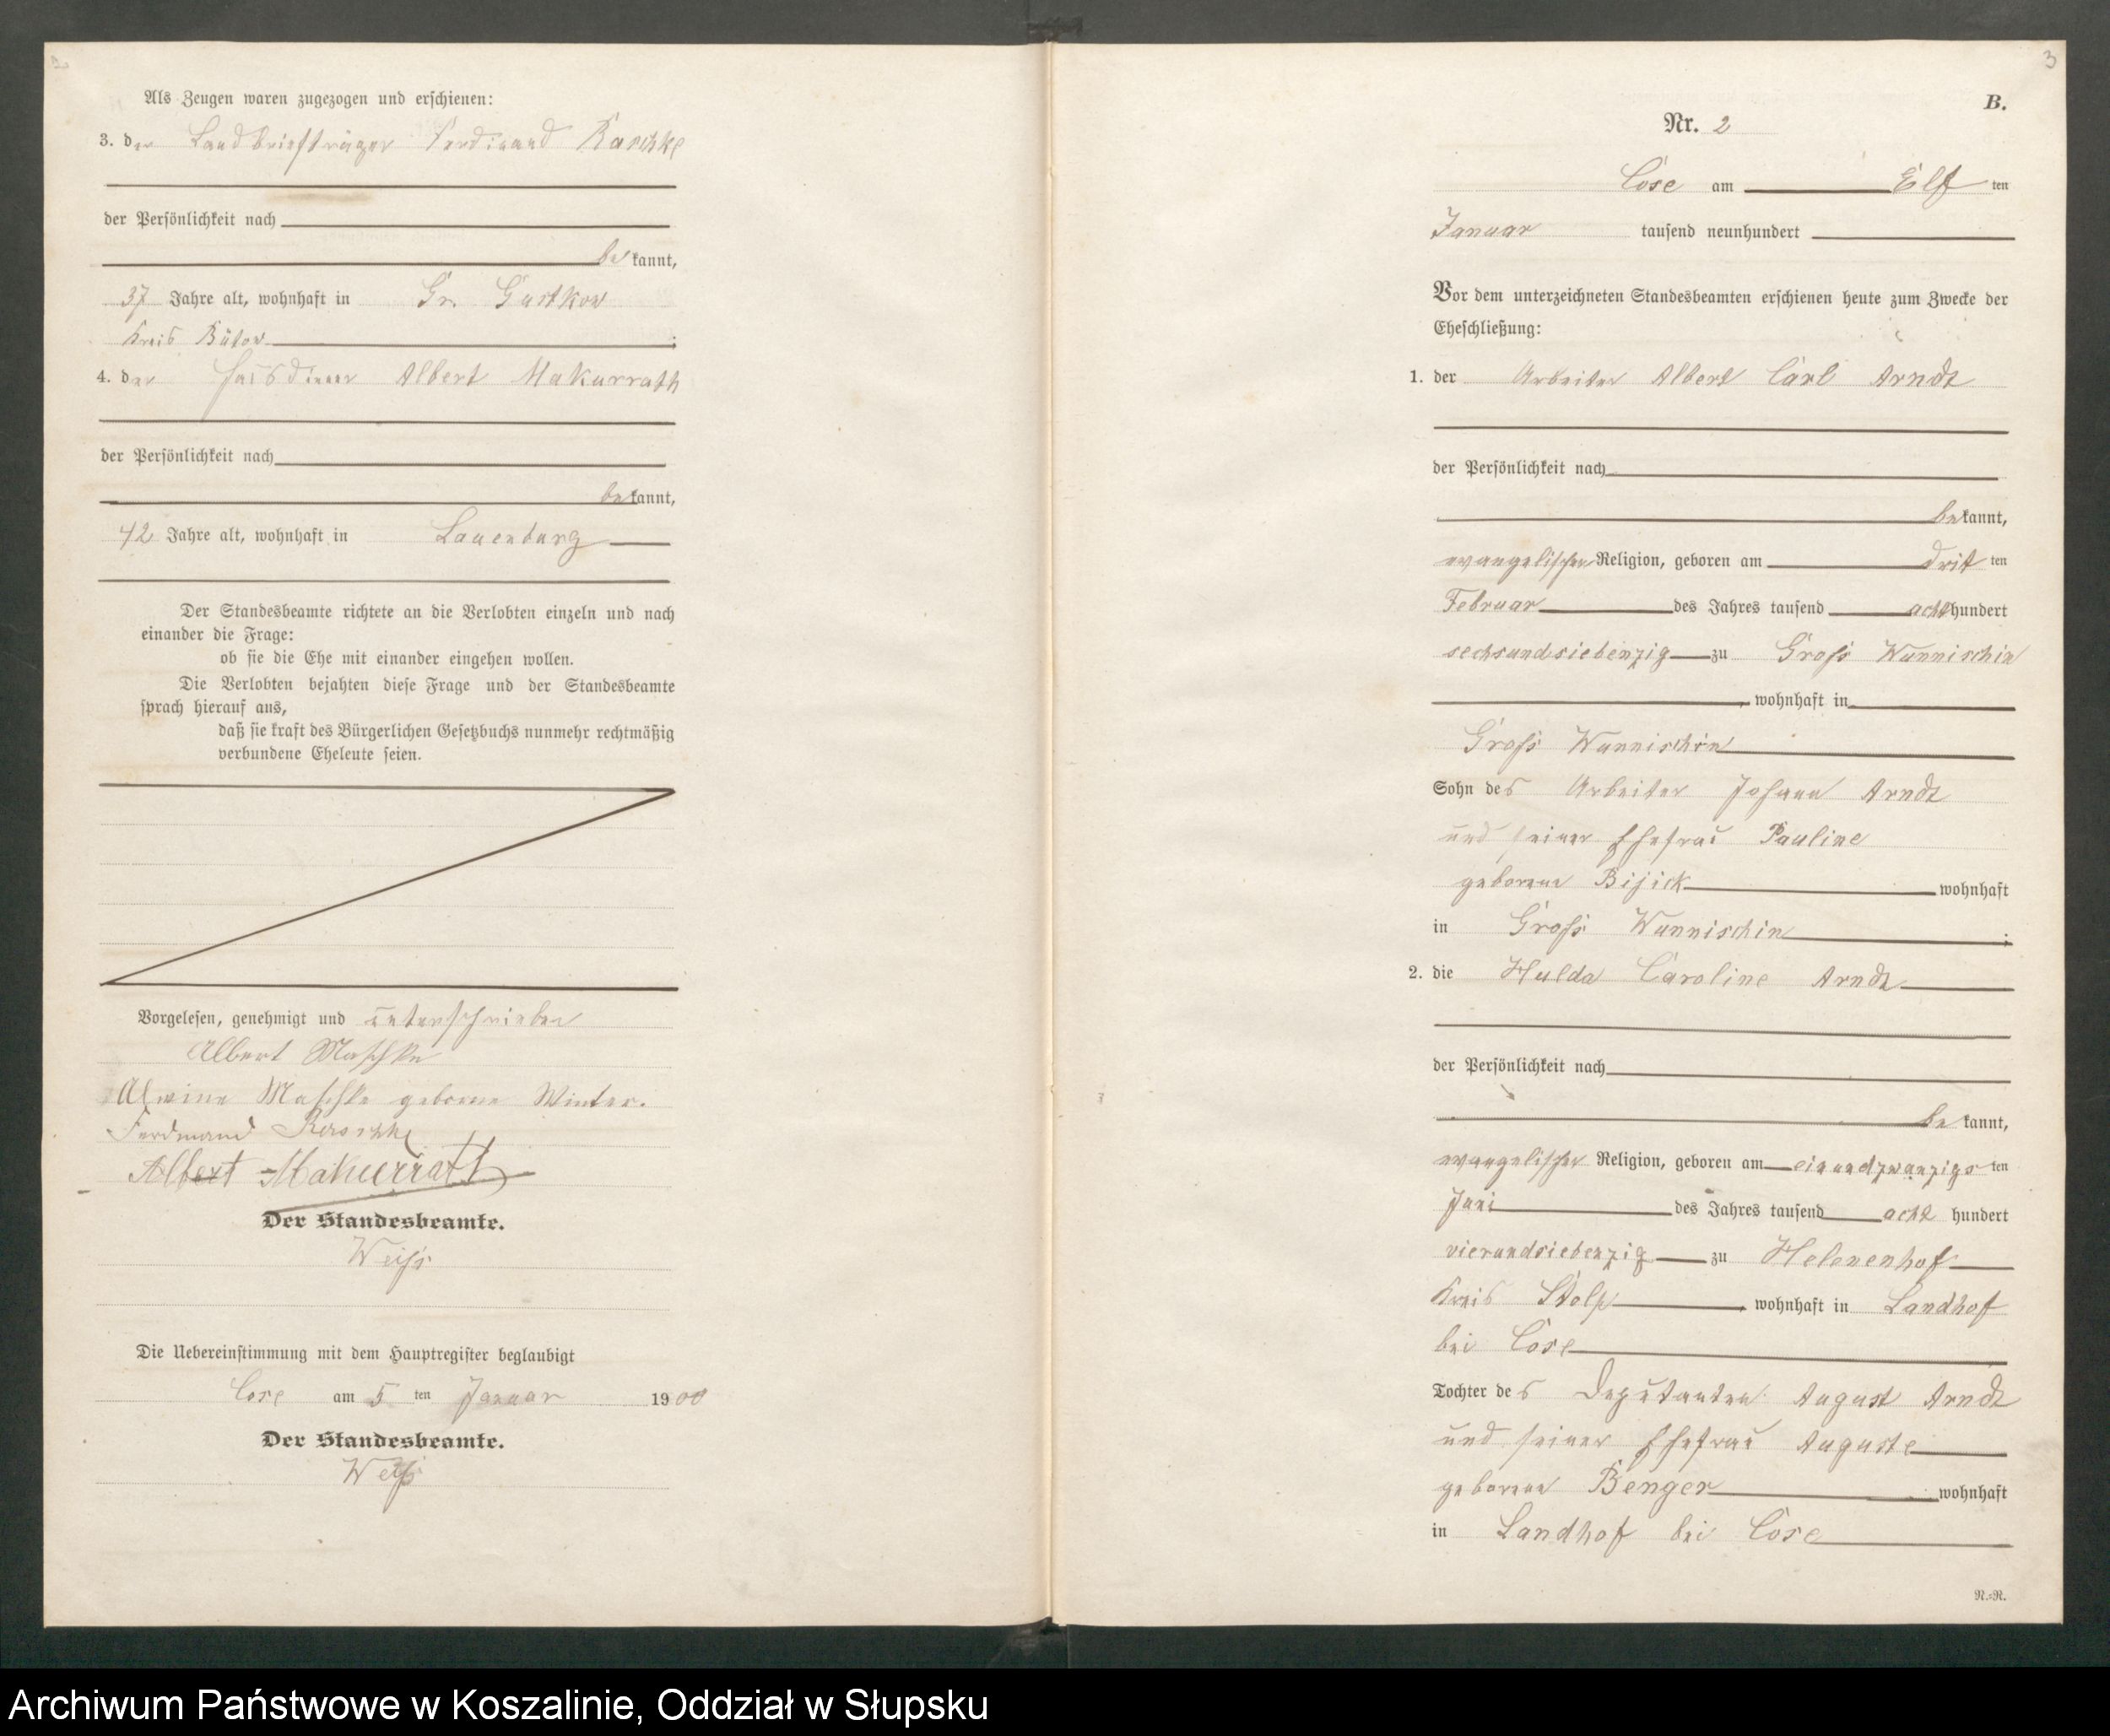 Als Zeugen waren zugezogen und erschienen:
3. der Landbriefträger Ferdinand Raschke
der Persönlichkeit nach
be kannt,
37 Jahre alt, wohnhaft in Gr. Gustkow
Kreis Bütow ;
4. der Hausdiener Albert Makurrath
der Persönlichkeit nach
bekannt,
42 Jahre alt, wohnhaft in Lauenburg
Der Standesbeamte richtete an die Verlobten einzeln und nach
einander die Frage:
ob sie die Ehe mit einander eingehen wollen.
Die Verlobten bejahten diese Frage und der Standesbeamte
sprach hierauf aus,
daß sie kraft des Bürgerlichen Gesetzbuchs nunmehr rechtmäßig
verbundene Eheleute seien.
Vorgelesen, genehmigt und unterschrieben
Albert Maschke
Alwine Maschke geborene Winter.
Ferdinand Raschke
Albert Makurrath
Der Standesbeamte.
Weiß
Die Uebereinstimmung mit dem Hauptregister beglaubigt
Cose am 5 ten Januar 1900
Der Standesbeamte.
Weiß
3
B.
Nr. 2
Cose am Elf ten
Januar tausend neunhundert
Vor dem unterzeichneten Standesbeamten erschienen heute zum Zwecke der
Eheschließung:
1. der Arbeiter Albert Carl Arndt
der Persönlichkeit nach
bekannt,
evangelischer Religion, geboren am drit ten
Februar des Jahres tausend achthundert
sechsundsiebenzig zu Groß Wunnischin
, wohnhaft in
Groß Wunnischin
Sohn des Arbeiter Johann Arndt
und seiner Ehefrau Pauline
geborene Bijick wohnhaft
in Groß Wunnischin ;
2. die Hulda Caroline Arndt
der Persönlichkeit nach
be kannt,
evangelischer Religion, geboren am einundzwanzigs ten
Juni des Jahres tausend acht hundert
vierundsiebenzig zu Helenenhof
Kreis Stolp , wohnhaft in Landhof
bei Cose
Tochter des Deputanten August Arndt
und seiner Ehefrau Auguste
geborene Benger wohnhaft
in Landhof bei Cose
N.=N.
Archiwum Państwowe w Koszalinie, Oddział w Słupsku